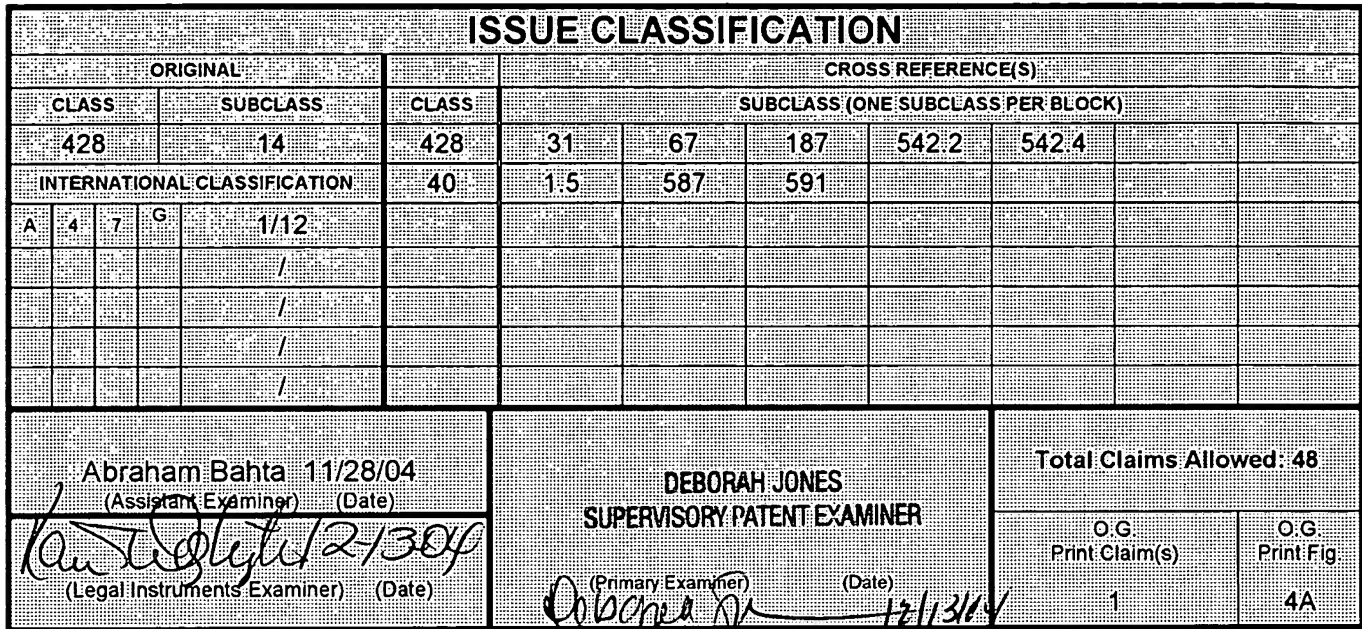 ISSUE CLASSIFICATION
ORIGINAL CROSS REFERENCE(S)
CLASS SUBCLASS CLASS SUBCLASS (ONE SUBCLASS PER BLOCK)
428 14 428 31 67 187 542.2 542.4
INTERNATIONAL CLASSIFICATION 40 1.5 587 591
A 4 7 G 1/12
/
/
/
/
Abraham Bahta 11/28/04
(Assistant Examiner) (Date)
12-13-04
(Legal Instruments Examiner) (Date)
DEBORAH JONES
SUPERVISORY PATENT EXAMINER
(Primary Examiner) (Date)
12/13/04
Total Claims Allowed: 48
O.G. Print Claim(s)
1
O.G. Print Fig.
4A